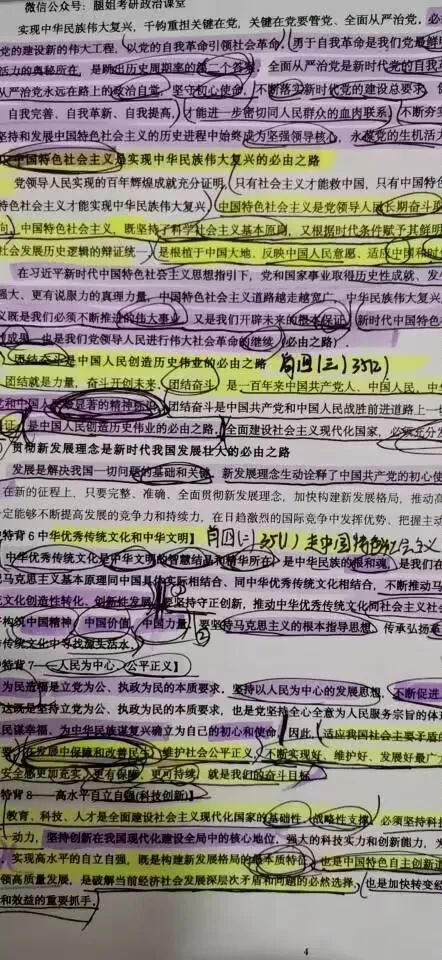 微信公众号：腿姐考研政治课堂
实现中华民族伟大复兴，千钧重担关键在党，关键在党要管党、全面从严治党。必
党的建设新的伟大工程，以党的自我革命引领社会革命。勇于自我革命是我们党最鲜
活力的奥秘所在，是跳出历史周期率的第二个答案。全面从严治党是新时代党的自我
从严治党永远在路上的政治自觉，坚守初心使命，不断落实新时代党的建设总要求，
自我完善、自我革新、自我提高，才能进一步密切同人民群众的血肉联系，不断夯实
坚持和发展中国特色社会主义的历史进程中始终成为坚强领导核心，永葆党的生机活力
中国特色社会主义是实现中华民族伟大复兴的必由之路
党领导人民实现的百年辉煌成就充分证明，只有社会主义才能救中国，只有中国特
色社会主义才能实现中华民族伟大复兴。中国特色社会主义是党领导人民长期奋斗
向。中国特色社会主义，既坚持了科学社会主义基本原则，又根据时代条件赋予其鲜明
社会发展历史逻辑的辩证统一，是根植于中国大地、反映中国人民意愿、适应中国和时
在习近平新时代中国特色社会主义思想指引下，党和国家事业取得历史性成就、发生
强大、更有说服力的真理力量，中国特色社会主义道路越走越宽广，中华民族伟大复兴
义既是我们必须不断推进的伟大事业，又是我们开辟未来的根本保证。新时代中国特
成果，也是我们党领导人民进行伟大社会革命的继续（必由之路）。
团结奋斗是中国人民创造历史伟业的必由之路 肖四(三) 35(2)
团结就是力量，奋斗开创未来。团结奋斗是一百年来中国共产党人、中国人民、中华
党和中国人民最显著的精神标识。团结奋斗是中国共产党和中国人民战胜前进道路上一
证，是中国人民创造历史伟业的必由之路。全面建设社会主义现代化国家，必须充分发
贯彻新发展理念是新时代我国发展壮大的必由之路
发展是解决我国一切问题的基础和关键。新发展理念生动诠释了中国共产党的初心使
在新的征程上，只要完整、准确、全面贯彻新发展理念，加快构建新发展格局，推动高
定能够不断提高发展的竞争力和持续力，在日趋激烈的国际竞争中发挥优势、把握主动
特背6 中华优秀传统文化和中华文明】 肖四(二) 35(1) 走中国特色社会主义
中华优秀传统文化是中华文明的智慧结晶和精华所在，是中华民族的根和魂，是我们在
马克思主义基本原理同中国具体实际相结合、同中华优秀传统文化相结合，不断推动马
文化创造性转化、创新性发展。要坚持守正创新，推动中华优秀传统文化同社会主义社会
构筑中国精神、中国价值、中国力量。要坚持马克思主义的根本指导思想，传承弘扬革
传统文化中寻找源头活水。
特背7——人民为中心、公平正义】
为民造福是立党为公、执政为民的本质要求，坚持以人民为中心的发展思想，不断促进
这既是坚持立党为公、执政为民的本质要求，也是党坚持全心全意为人民服务宗旨的体
民谋幸福、为中华民族谋复兴确立为自己的初心和使命。因此，适应我国社会主要矛盾的
要在发展中保障和改善民生，维护社会公平正义，不断实现好、维护好、发展好最广
安全感更加充实、更有保障、更可持续，就是我们的奋斗目标。
特背8——高水平自立自强(科技创新)】
教育、科技、人才是全面建设社会主义现代化国家的基础性、战略性支撑，必须坚持科技
一动力，坚持创新在我国现代化建设全局中的核心地位。强大的科技实力和创新能力，
实现高水平的自立自强，既是构建新发展格局的最本质特征，也是中国特色自主创新道
领高质量发展，是破解当前经济社会发展深层次矛盾和问题的必然选择，也是加快转变经
和效益的重要抓手。
4